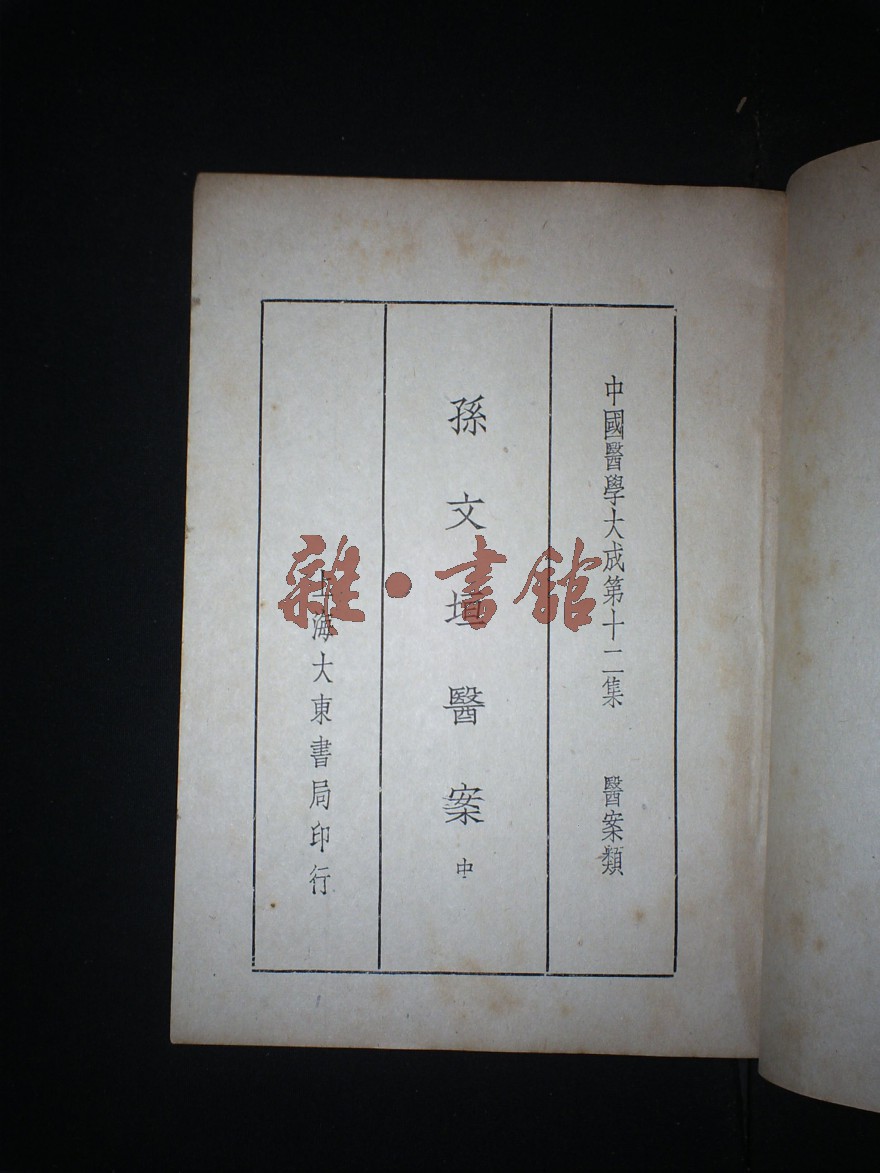 中國醫學大成第十二集　醫案類
孫文垣醫案 中
上海大東書局印行
雜·書館